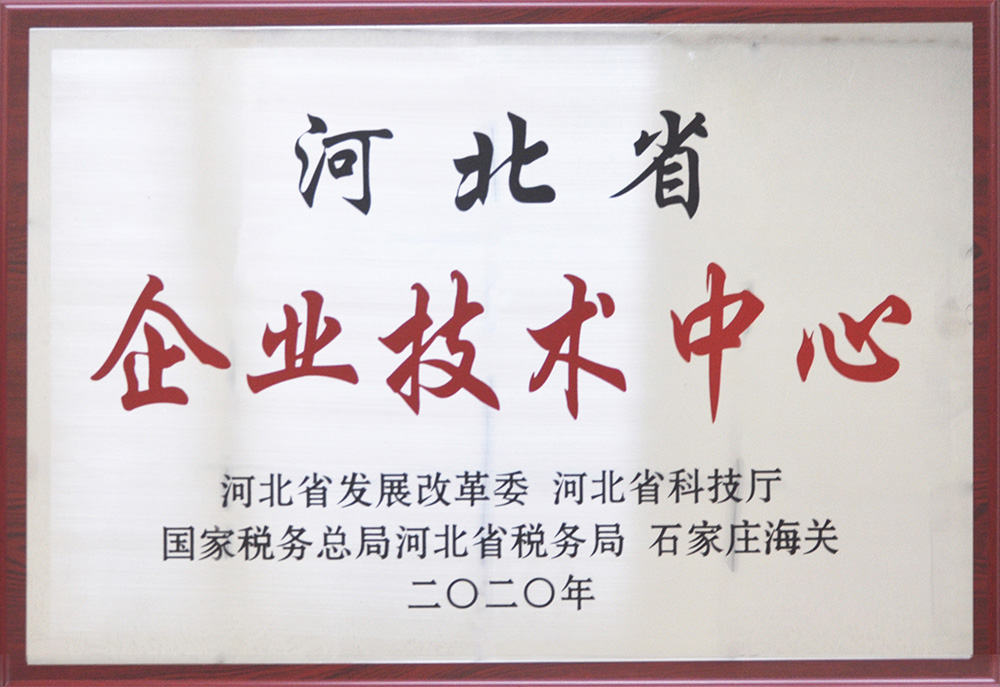 河北省
企业技术中心
河北省发展改革委 河北省科技厅
国家税务总局河北省税务局 石家庄海关
二〇二〇年